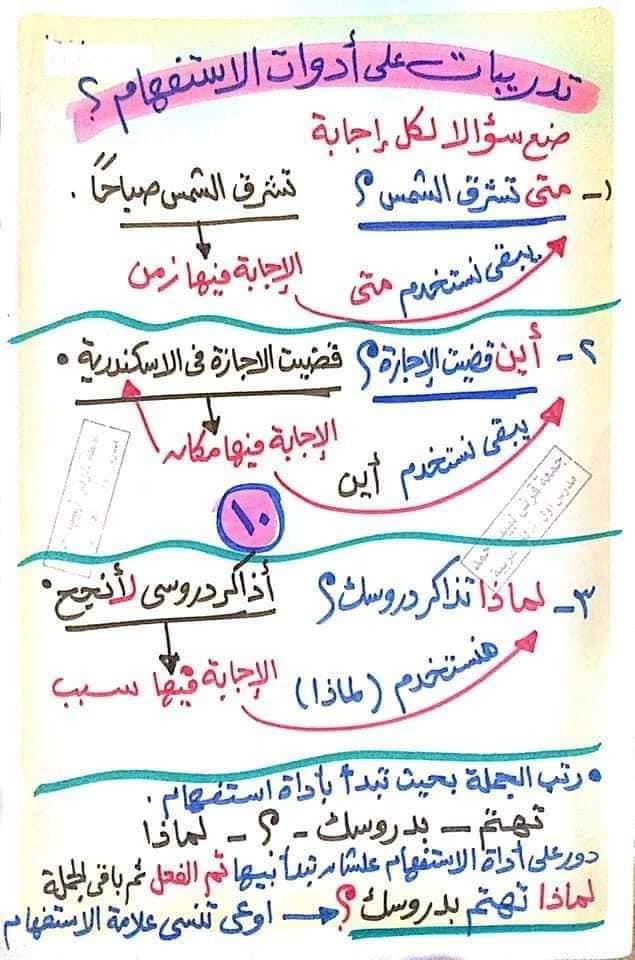 تدريبات على أدوات الاستفهام ؟
ضع سؤالا لكل إجابة
١- متى تشرق الشمس ؟ تشرق الشمس صباحًا .
يبقى نستخدم متى الإجابة فيها زمن
٢- أين قضيت الإجازة ؟ قضيت الاجازة فى الاسكندرية .
يبقى نستخدم أين الإجابة فيها مكان
١٠
٣- لماذا تذاكر دروسك ؟ أذاكر دروسى لأنجح .
هنستخدم (لماذا) الإجابة فيها سبب
• رتب الجملة بحيث تبدأ بأداة استفهام .
تهتم - بدروسك - ؟ - لماذا
دور على أداة الاستفهام علشان تبدأ بيها ثم الفعل ثم باقى الجملة
لماذا تهتم بدروسك ؟ اوعى تنسى علامة الاستفهام